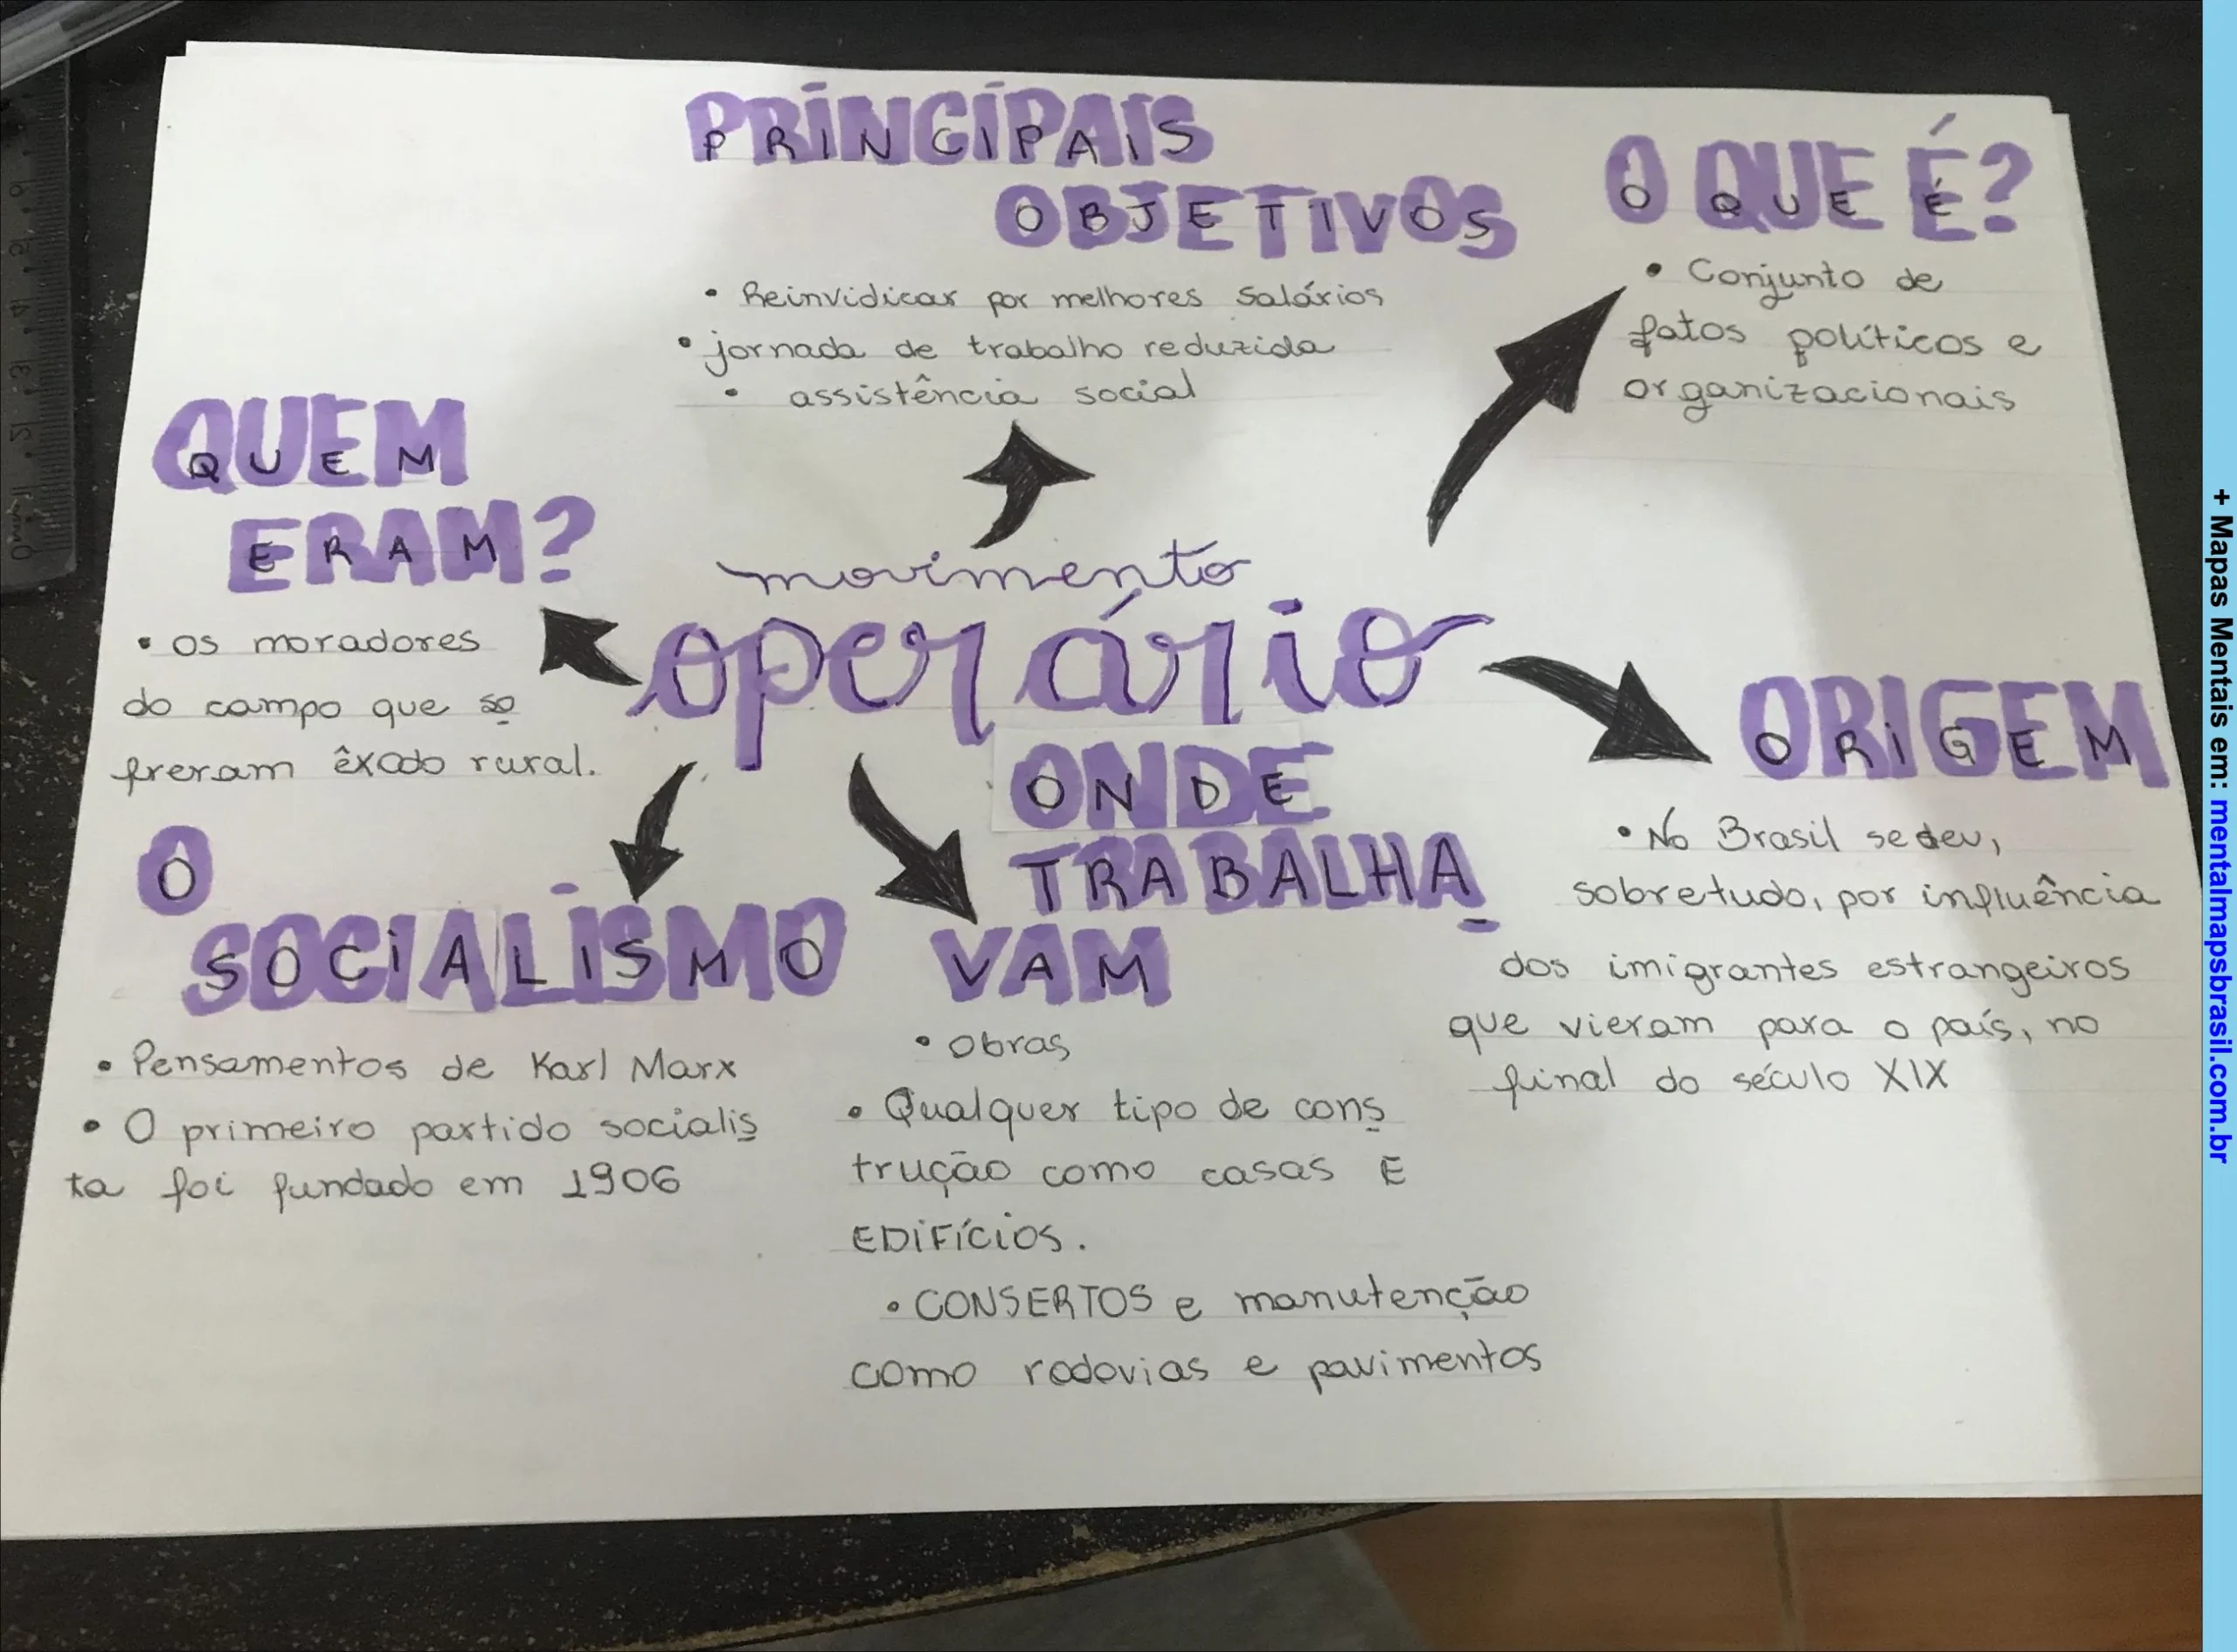 PRINCIPAIS
OBJETIVOS
• Reinvidicar por melhores salários
• jornada de trabalho reduzida
• assistência social
O QUE É?
• Conjunto de
fatos políticos e
organizacionais
QUEM
ERAM?
• os moradores
do campo que so
freram êxodo rural.
movimento
operário
ORIGEM
• No Brasil se deu,
sobretudo, por influência
dos imigrantes estrangeiros
que vieram para o país, no
final do século XIX
O
SOCIALISMO
• Pensamentos de Karl Marx
• O primeiro partido socialis
ta foi fundado em 1906
ONDE
TRABALHA
VAM
• Obras
• Qualquer tipo de cons
trução como casas E
EDIFÍCIOS.
• CONSERTOS e manutenção
como rodovias e pavimentos
+ Mapas Mentais em: mentalmapsbrasil.com.br